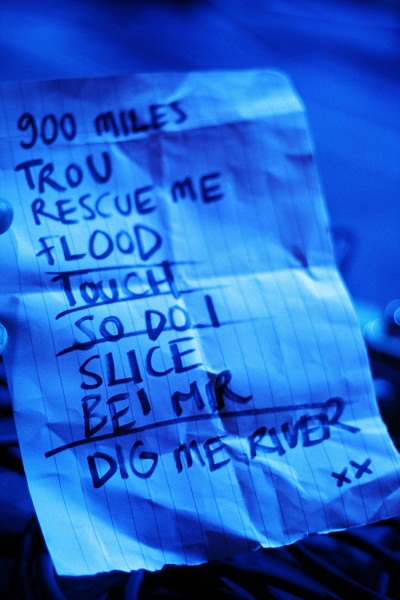 900 MILES
TROU
RESCUE ME
FLOOD
TOUCH
SO DO I
SLICE
BEI MIR
DIG ME RIVER
xx